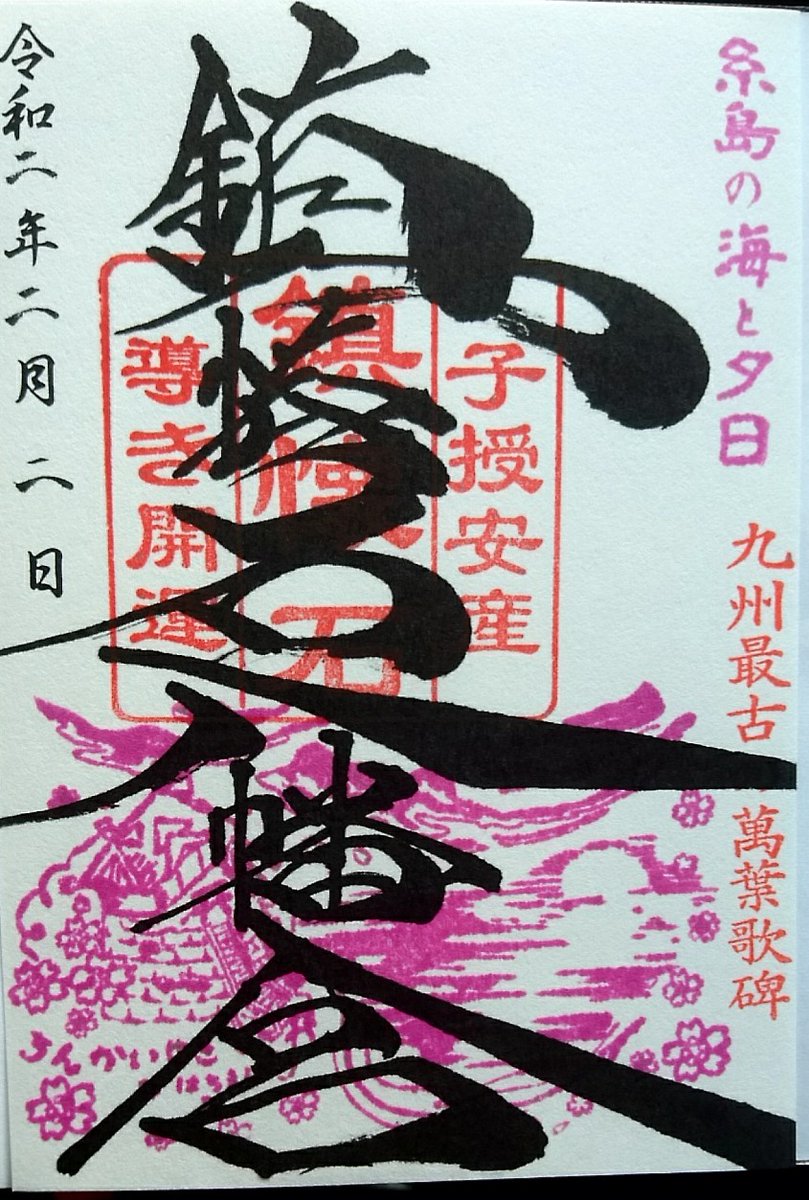 糸島の海と夕日
九州最古の萬葉歌碑
子授安産
鎮懐石
導き開運
鎮懐石八幡宮
令和二年二月二日